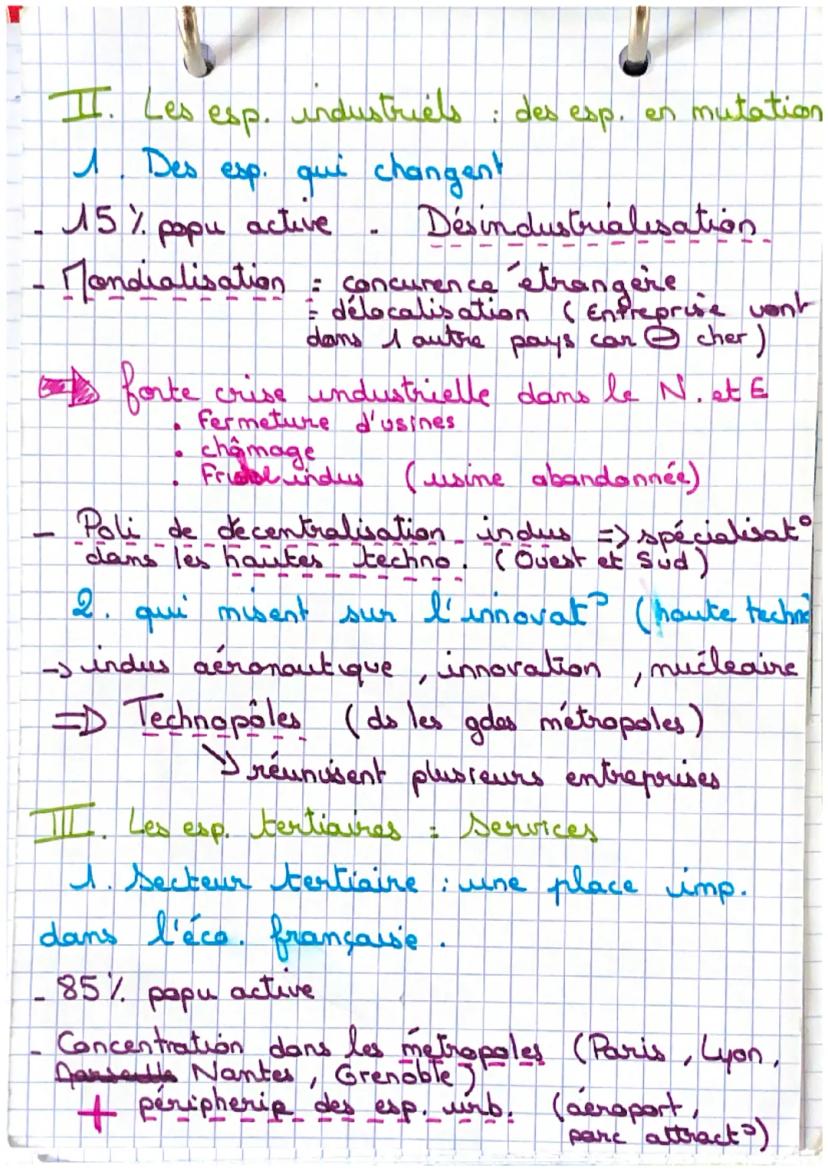 II. Les esp. industriels : des esp. en mutation
1. Des esp. qui changent
- 15 % popu active - Désindustrialisation
- Mondialisation = concurence étrangère
= délocalisation (Entreprise vont
dans 1 autre pays car ⊖ cher)
⇒ forte crise industrielle dans le N. et E
• Fermeture d'usines
• chômage
• indus (usine abandonnée)
- Poli de décentralisation indus => spécialisat°
dans les hautes techno. (Ouest et Sud)
2. qui misent sur l'innovat° (haute techno
-> indus aéronautique, innovation, nucléaire
=> Technopôles (ds les gdes métropoles)
↘ réunissent plusieurs entreprises
III. Les esp. tertiaires = Services
1. Secteur tertiaire : une place imp.
dans l'éco. française.
- 85 % popu active
- Concentration dans les métropoles (Paris, Lyon,
Nantes, Grenoble)
+ péripherie des esp. urb. (aéroport,
parc attract°)